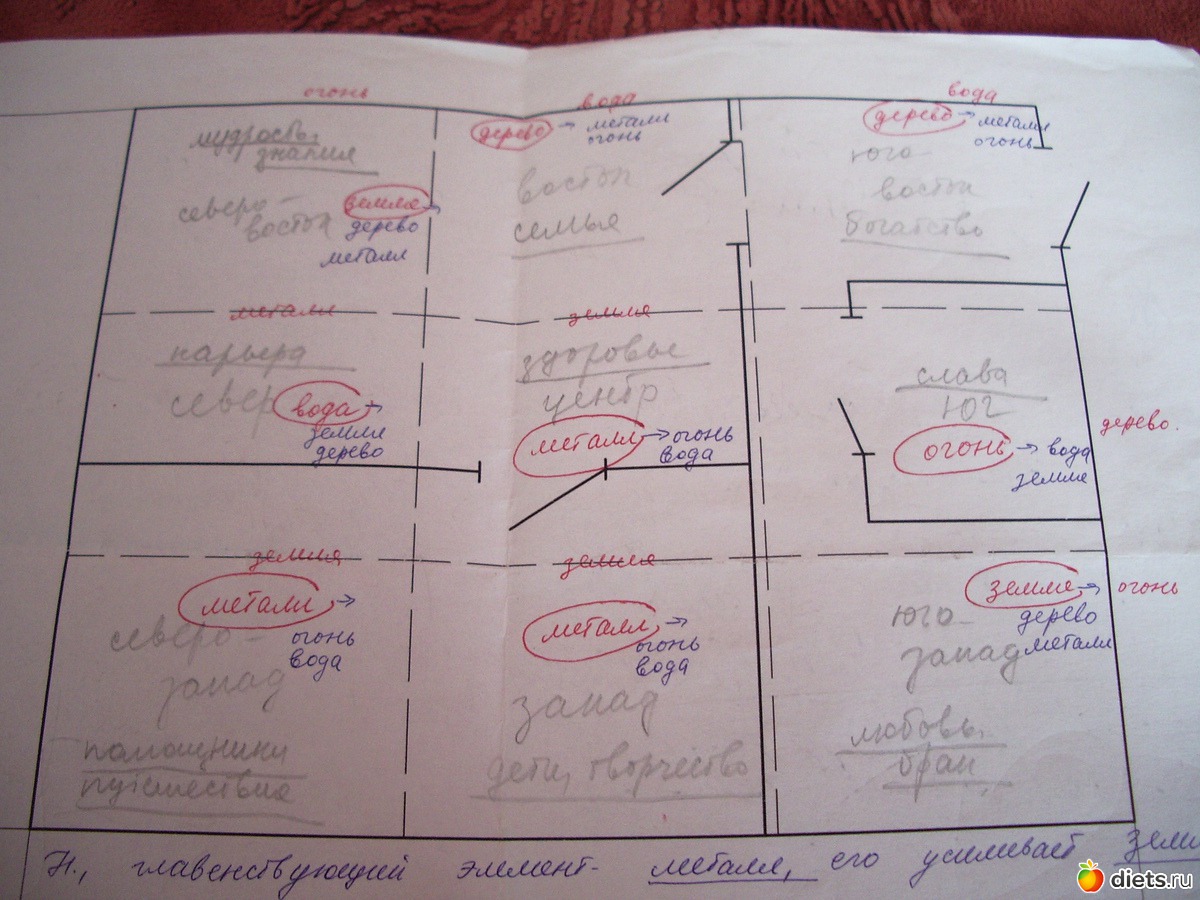 огонь
мудрость,
знания
северо-
восток
земля →
дерево
металл
вода
дерево → металл
огонь
восток
семья
вода
дерево → металл
огонь
юго-
восток
богатство
металл
карьера
север
вода →
земля
дерево
земля
здоровье
центр
металл → огонь
вода
слава
юг
огонь → вода
земля
дерево.
земля
металл →
северо-
огонь
вода
запад
помощники
путешествия
земля
металл →
огонь
вода
запад
дети, творчество
земля →
дерево
металл
огонь
юго-
запад
любовь,
брак
Н., главенствующий элемент - металл, его усиливает земл
diets.ru